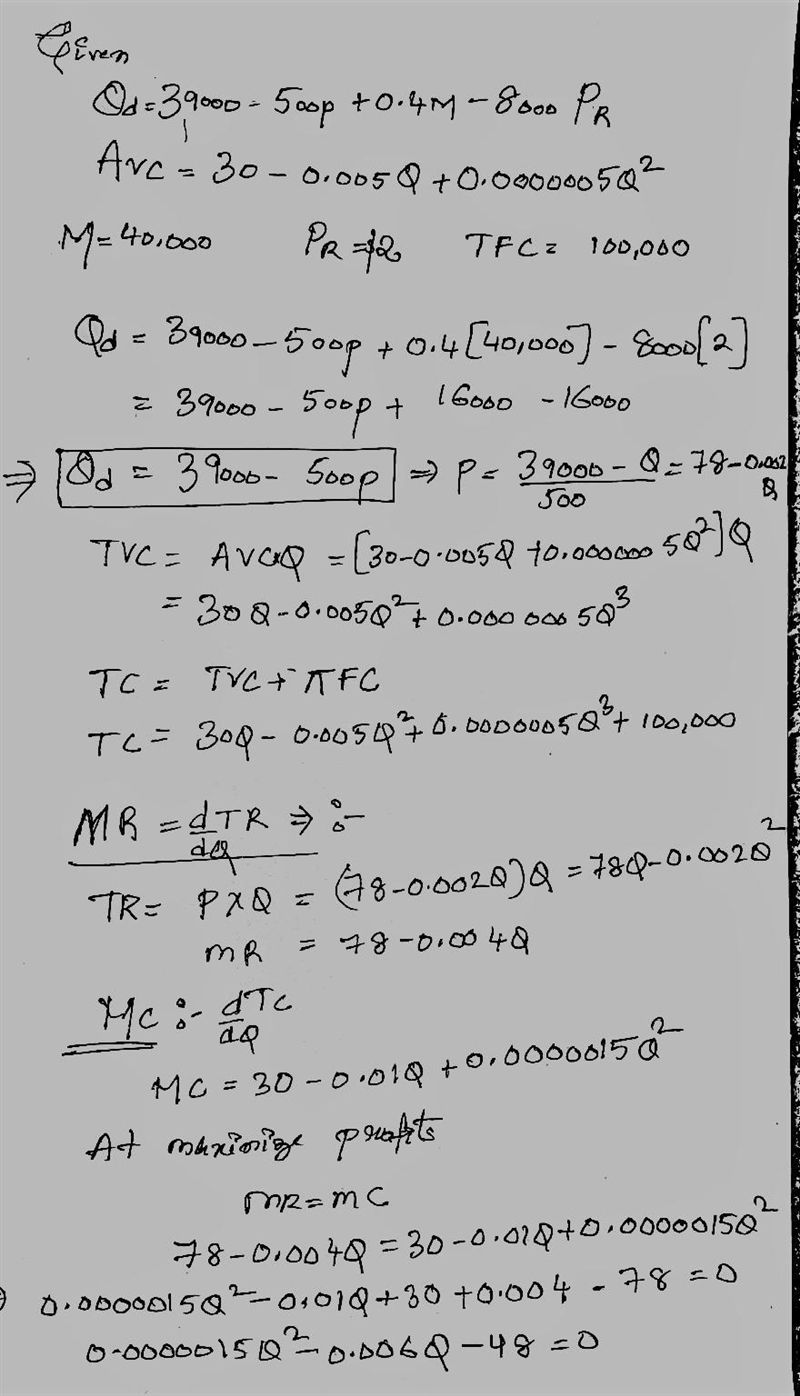 Given
Qd = 39000 - 500p + 0.4M - 8000 PR
AVC = 30 - 0.005Q + 0.0000005Q²
M = 40,000 PR = $2 TFC = 100,000
Qd = 39000 - 500p + 0.4[40,000] - 8000[2]
= 39000 - 500p + 16000 - 16000
⇒ Qd = 39000 - 500p ⇒ P = (39000 - Q)/500 = 78 - 0.002Q
TVC = AVCxQ = [30 - 0.005Q + 0.0000005Q²]Q
= 30Q - 0.005Q² + 0.0000005Q³
TC = TVC + TFC
TC = 30Q - 0.005Q² + 0.0000005Q³ + 100,000
MR = dTR/dQ ⇒ :-
TR = PXQ = (78 - 0.002Q)Q = 78Q - 0.002Q²
MR = 78 - 0.004Q
MC :- dTC/dQ
MC = 30 - 0.01Q + 0.0000015Q²
At maximize profits
MR = MC
78 - 0.004Q = 30 - 0.01Q + 0.0000015Q²
0.0000015Q² - 0.01Q + 30 + 0.004 - 78 = 0
0.0000015Q² - 0.006Q - 48 = 0